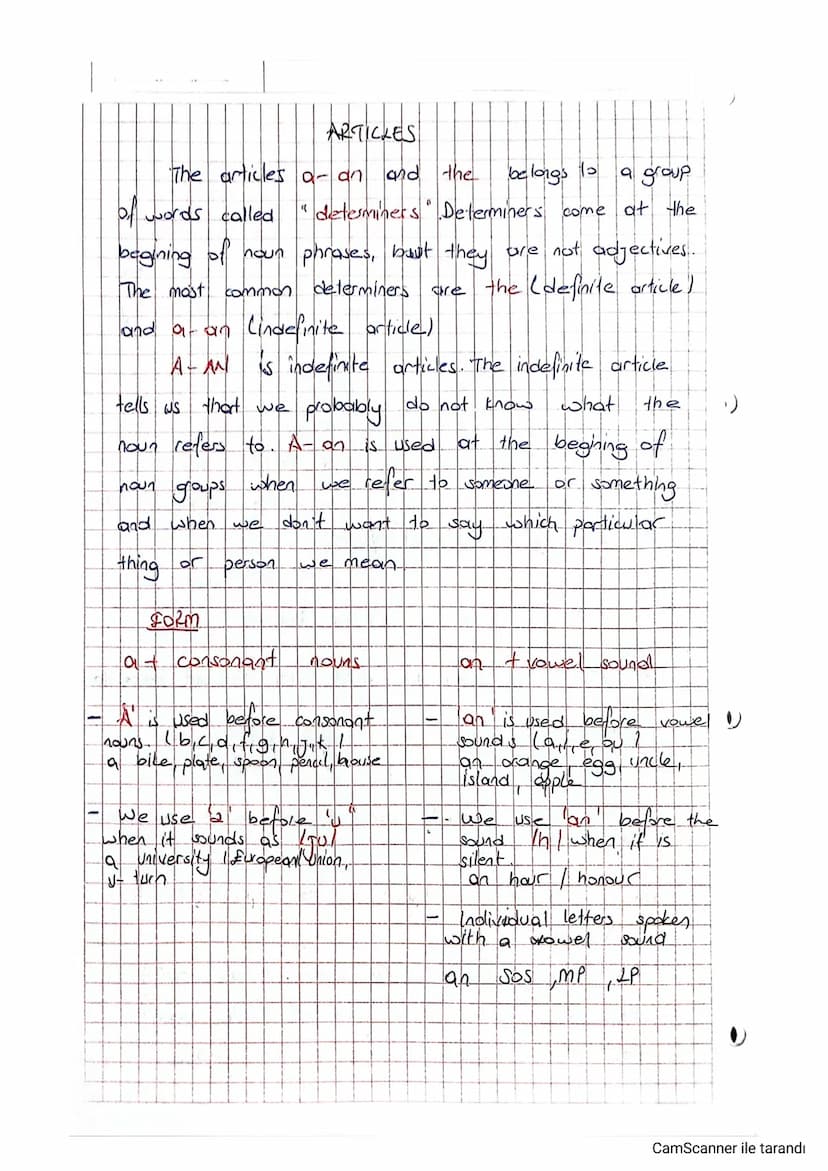 ARTICLES
The articles a- an and the belongs to a group
of words called "determiners". Determiners come at the
begining of noun phrases, but they are not adjectives.
The most common determiners are the (definite article)
and a- an (indefinite article)
A- AN is indefinite articles. The indefinite article
tells us that we probably do not know what the
noun refers to. A- an is used at the begining of
noun groups when we refer to someone or something
and when we don't want to say which particular
thing or person we mean
FORM
a + consonant nouns
- 'A' is used before consonant
nouns. (b,c,d,f,g,h,j,k /
a bike, plate, spoon, pencil, house
- We use 'a' before 'u'
when it sounds as
a university / European Union,
u- turn
an + vowel sound
- 'an' is used before vowel
sounds
an orange, egg, uncle,
island, apple
- We use 'an' before the
sound /h/ when it is
silent.
an hour / honour
- Individual letters spoken
with a vowel sound
an SOS, MP, LP
CamScanner ile tarandı